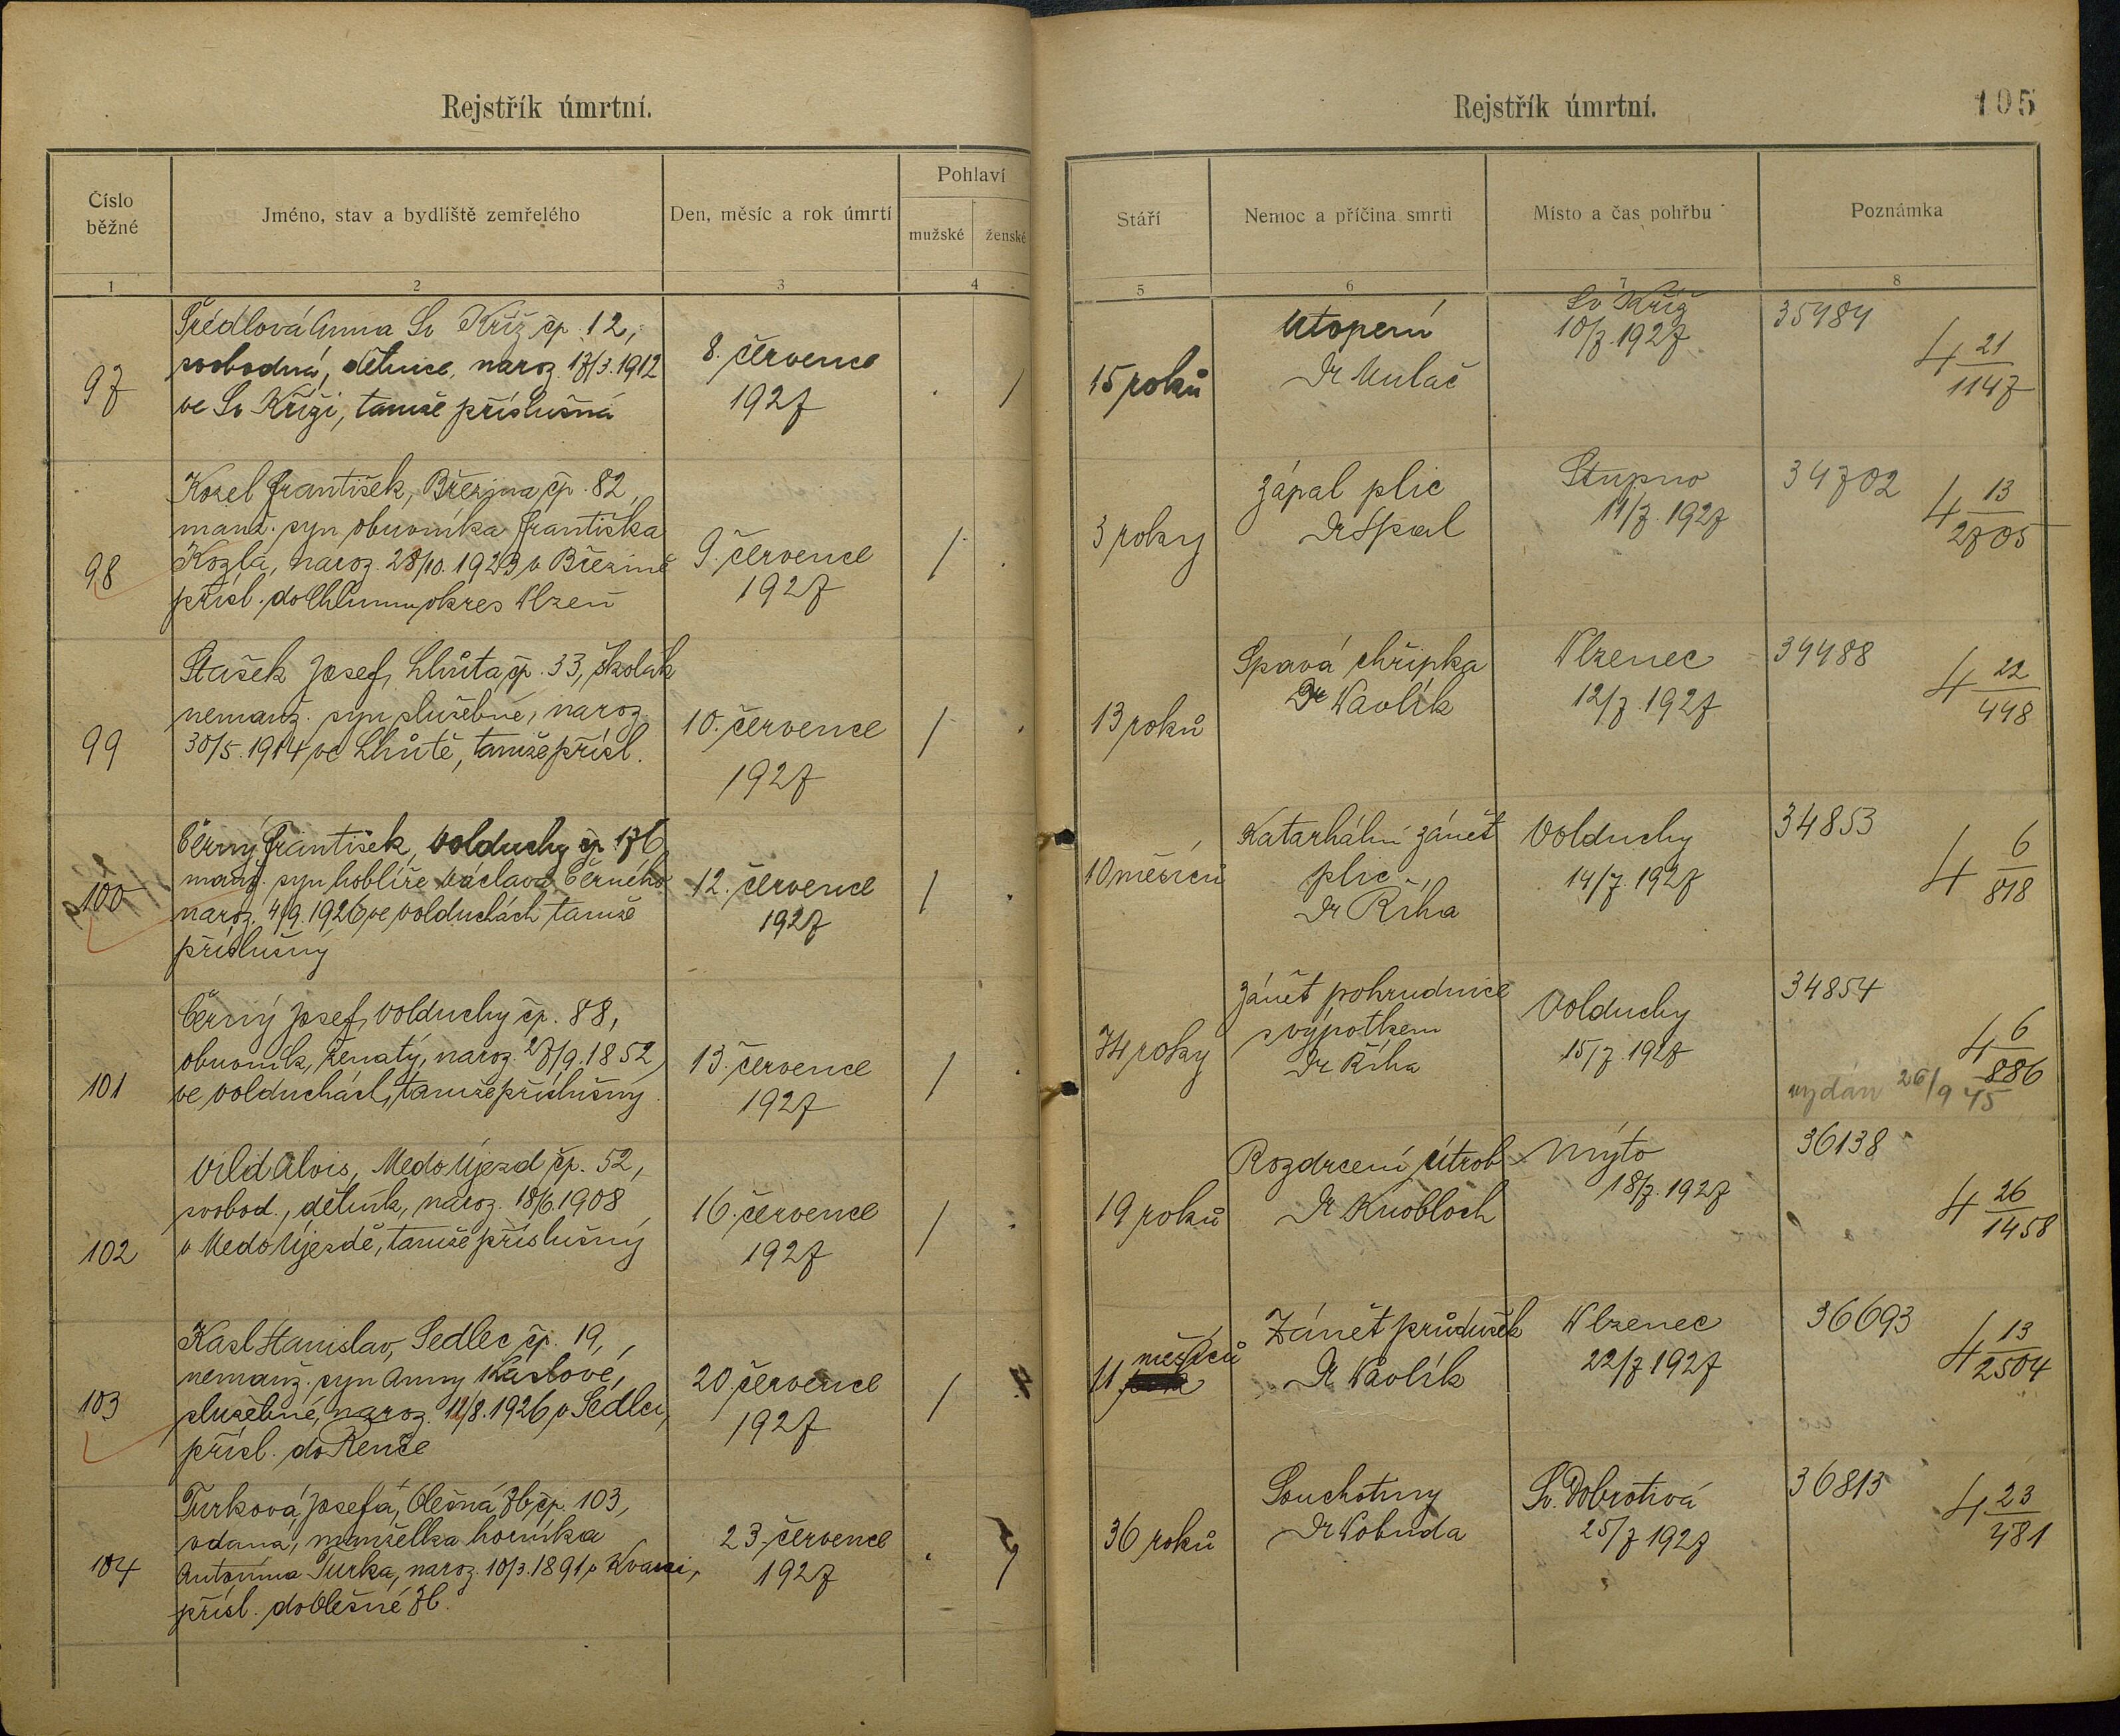 Rejstřík úmrtní.
Číslo běžné
Jméno, stav a bydliště zemřelého
Den, měsíc a rok úmrtí
Pohlaví
mužské
ženské
1
2
3
4
97
Šrédlová Anna Sv Kříž čp. 12,
svobodná, dělnice, naroz. 17/3.1912
ve Sv Kříži, tamže příslušná
8. července
1927
/
98
Kozel František, Březina čp. 82,
manž. syn obuvníka Františka
Kozla, naroz. 28/10.1923 v Březině
přísl. do Chlumu, okres Plzeň
9. července
1927
/
99
Stašek Josef, Lhůta čp. 33, školák
nemanž. syn služebné, naroz.
30/5.1914 ve Lhůtě, tamže přísl.
10. července
1927
/
100
Černý František, Volduchy čp. 176
manž. syn hoblíře Václava Černého
naroz. 4/9.1926 ve Volduchách tamže
příslušný
12. července
1927
/
101
Černý Josef, Volduchy čp. 88,
obuvník, ženatý, naroz. 27/9.1852
ve Volduchách, tamže příslušný.
13. července
1927
/
102
Vild Alois, Medo Újezd čp. 52,
svobod., dělník, naroz. 18/6.1908
v Medo Újezdě, tamže příslušný
16. července
1927
/
103
Kasl Stanislav, Sedlec čp. 19,
nemanž. syn Anny Kaslové,
služebné, naroz. 12/8.1926 v Sedlci,
přísl. do Renče
20. července
1927
/
104
Turková Josefa, Olešná Zb. čp. 103,
vdaná, manželka horníka
Antonína Turka, naroz. 10/3.1891 v Kvani,
přísl. do Olešné Zb.
23. července
1927
Rejstřík úmrtní.
105
Stáří
Nemoc a příčina smrti
Místo a čas pohřbu
Poznámka
5
6
7
8
15 roků
Utopení
Dr Mulač
Sv Kříž
10/7.1927
35484
4 21/1147
3 roky
Zápal plic
Dr Spal
Stupno
11/7.1927
34702
4 13/2705
13 roků
Spavá chřipka
Dr Pavlík
Plzenec
12/7.1927
34488
4 22/448
10 měsíců
Katarhální zánět
plic
Dr Říha
Volduchy
14/7.1927
34853
4 6/818
74 roky
Zánět pohrudnice
s výpotkem
Dr Říha
Volduchy
15/7.1927
34854
4 6/886
vydán 26/9 45
19 roků
Rozdrcení útrob
Dr Knobloch
Mýto
18/7.1927
36138
4 26/1458
11 měsíců
Zánět průdušek
Dr Pavlík
Plzenec
22/7 1927
36693
4 13/2504
36 roků
Souchotiny
Dr Pobuda
Sv. Dobrotivá
25/7 1927
36813
4 23/481